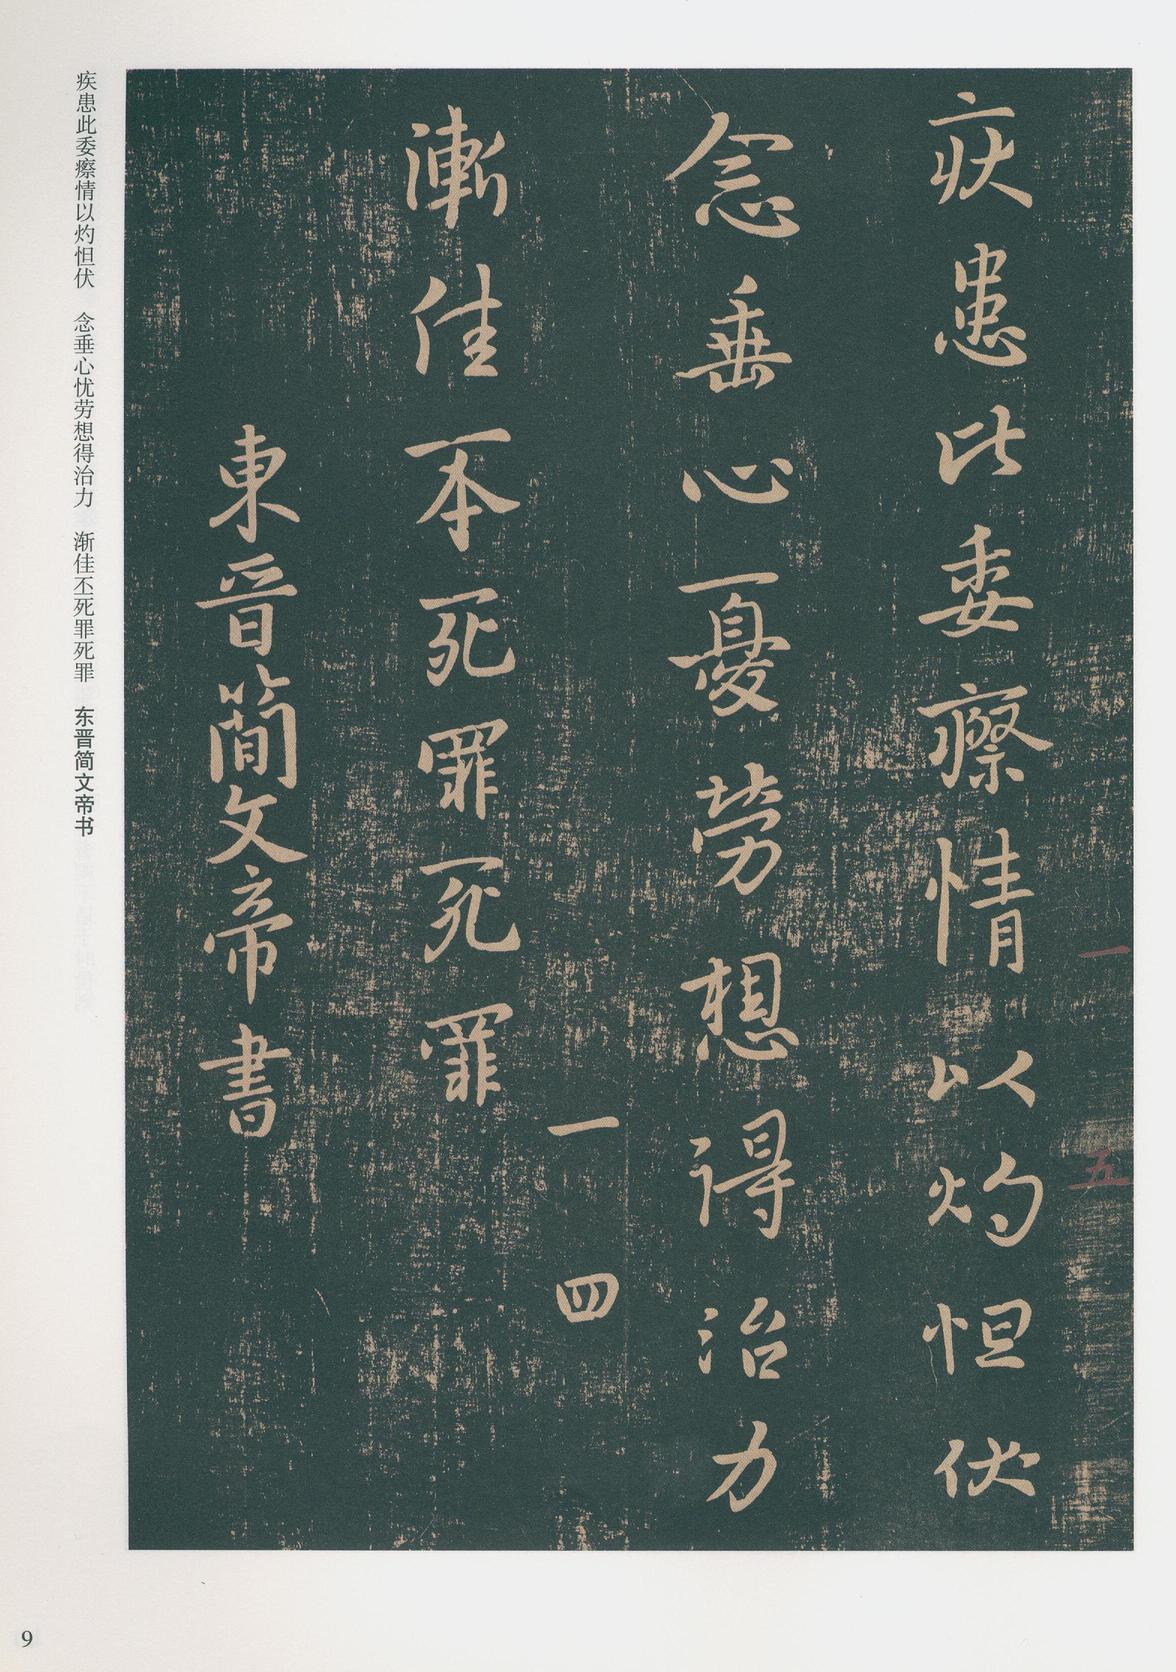 疾患比委瘵情以灼怛伏
念垂心憂勞想得治力
一四
漸佳不死罪死罪
東晋簡文帝書
一五
疾患此委瘵情以灼怛伏　念垂心忧劳想得治力　渐佳丕死罪死罪　东晋简文帝书
9